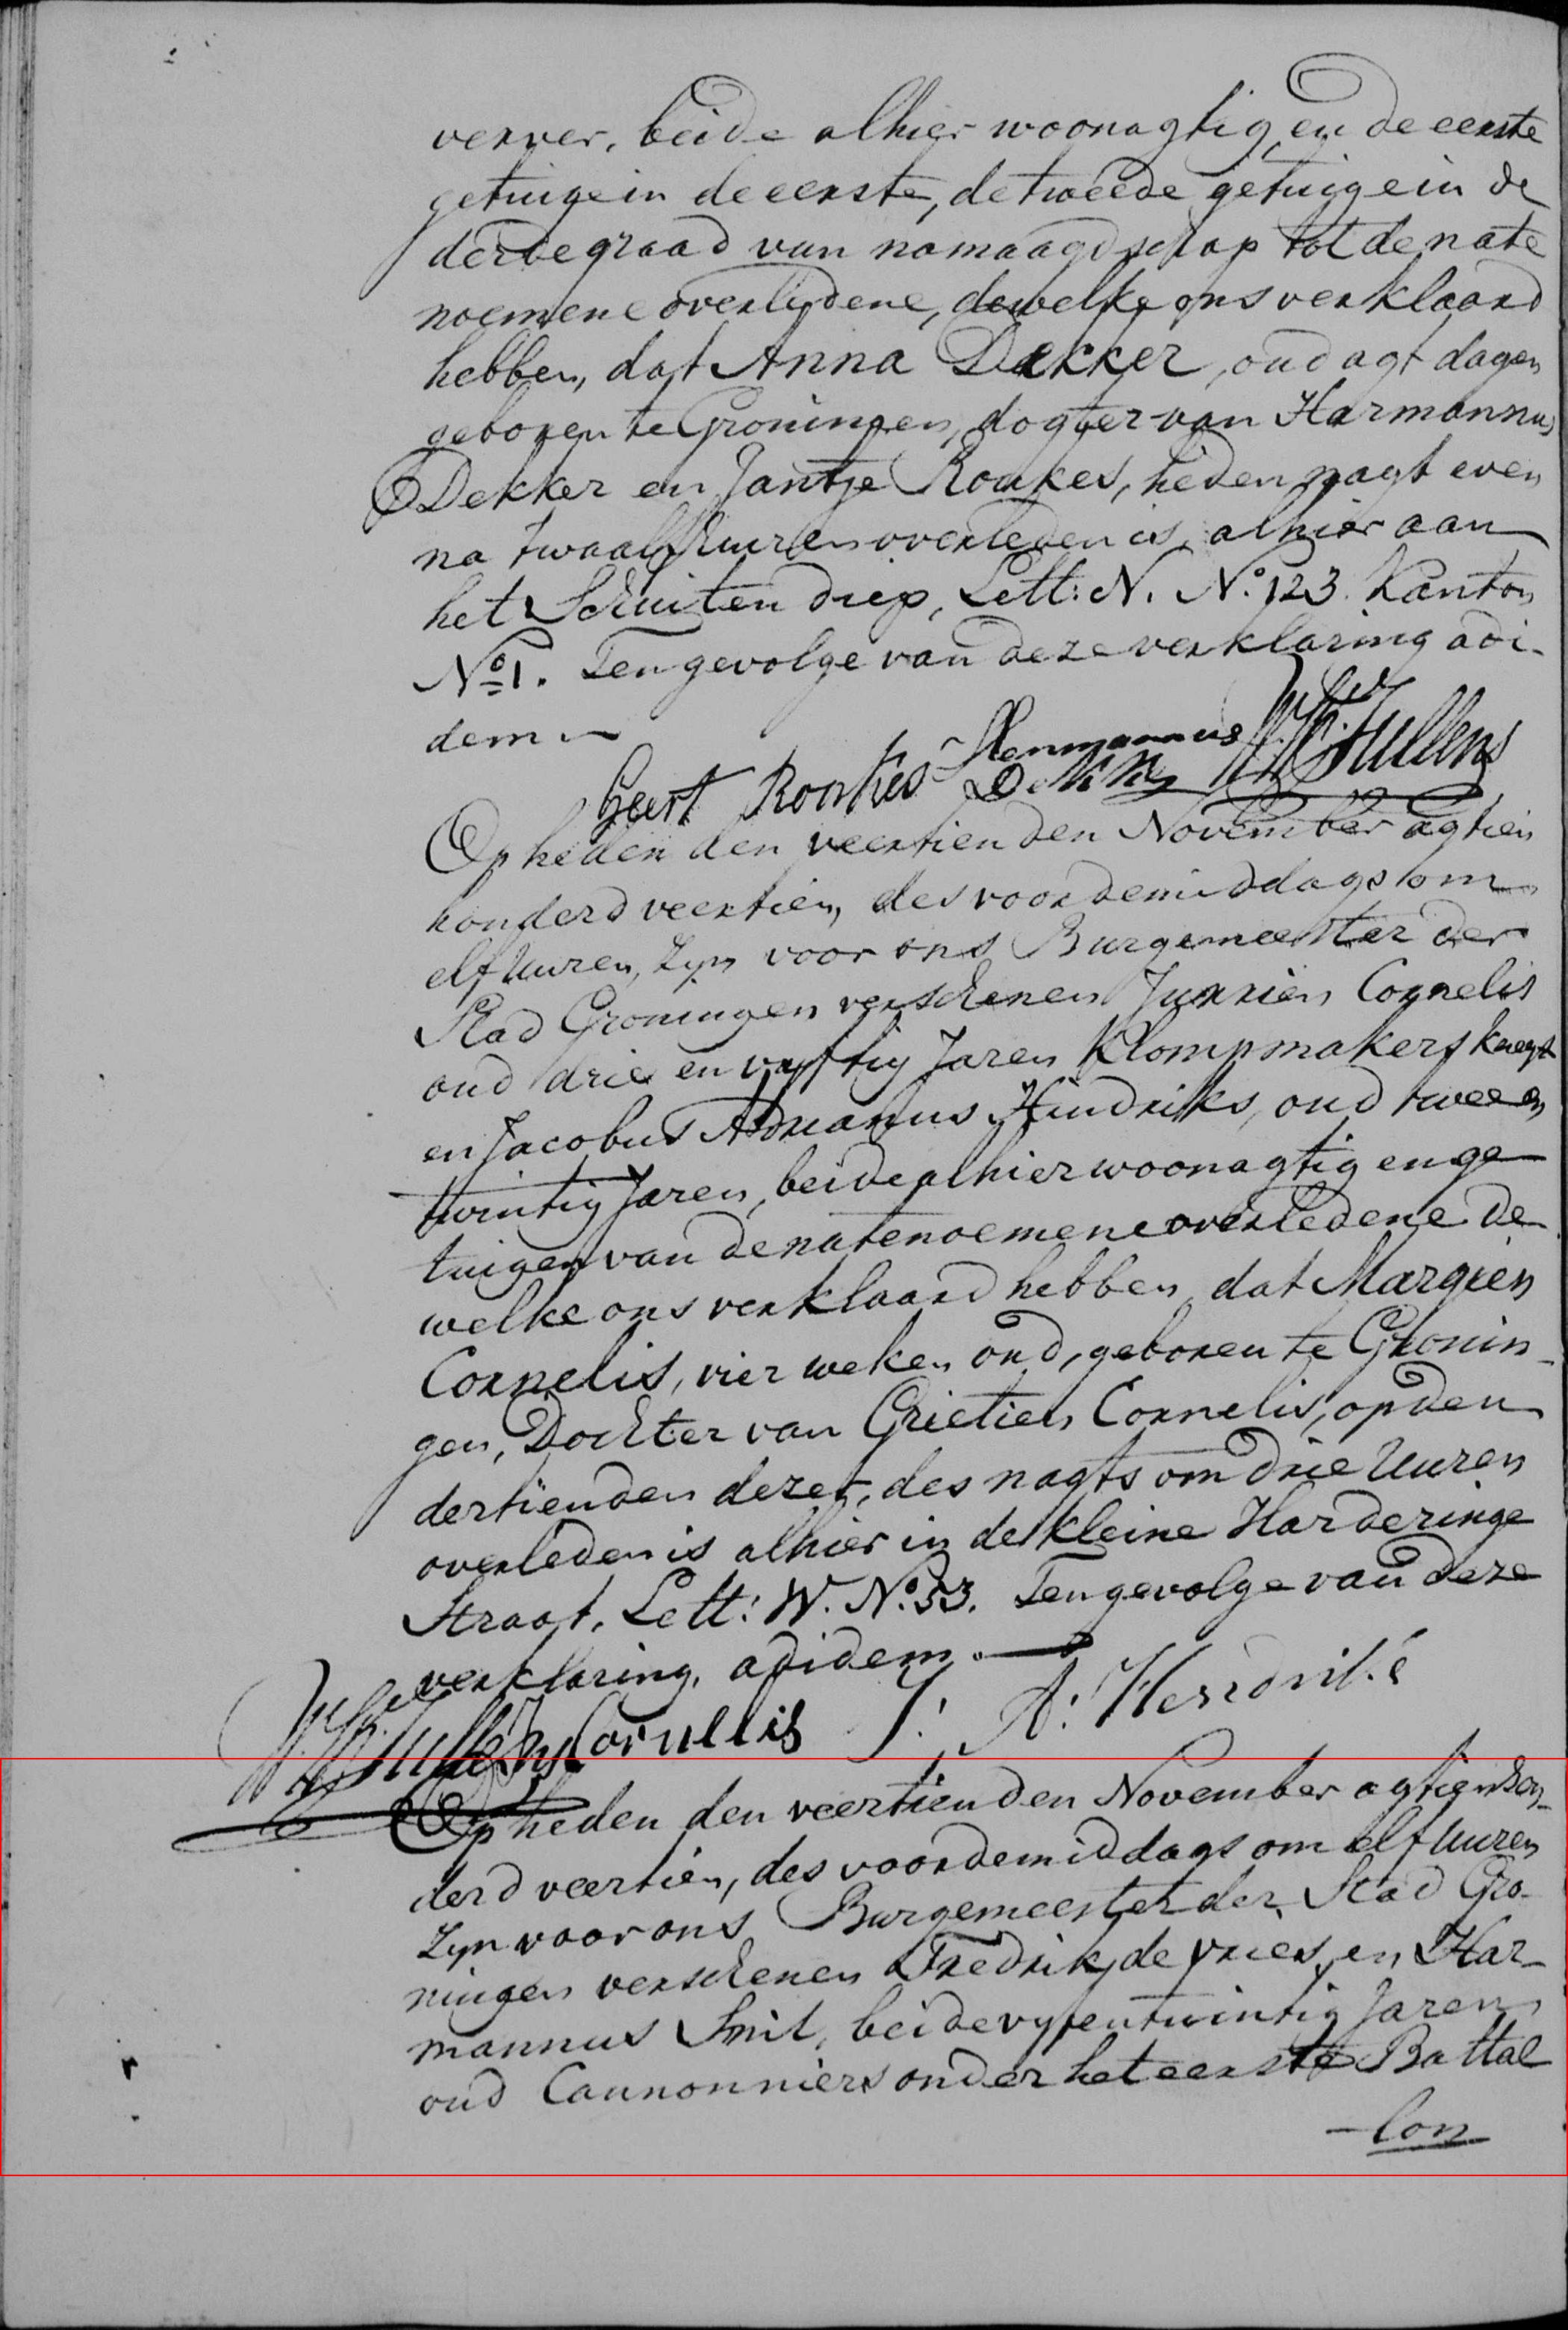 verver, beide alhier woonagtig, en de eerste
getuige in de eerste, de tweede getuige in de
derde graad van namaagdschap tot de nate
noemene overlydene, dewelke ons verklaard
hebben, dat Anna Dekker, oud agt dagen
geboren te Groningen, dogter van Harmannus
Dekker en Jantje Roukes, heden nagt even
na twaalf Uuren overleden is, alhier aan
het Schuiten diep, Lett: N. No. 123. Kanton
No. 1. Ten gevolge van deze verklaring adi-
dem
Geert Roukes Hermannus Dekker
Op heden den veertienden November agtien
honderd veertien, des voordemiddags om
elf Uuren, Zyn voor ons Burgemeester der
Stad Groningen verschenen Jurrien Cornelis
oud drie en vyftig Jaren Klompmakersknegt
en Jacobus Adrianus Hindriks, oud twee en
twintig Jaren, beide alhier woonagtig en ge
tuigen van de natenoemene overledene de
welke ons verklaard hebben, dat Margien
Cornelis, vier weken oud, geboren te Gronin-
gen, Dochter van Grietien Cornelis, op den
dertienden dezer, des nagts om drie Uuren
overleden is alhier in de kleine Harderinge
Straat, Lett: W. No. 53. Ten gevolge van deze
verklaring, adidem.
Cornellis J: A: Hendriks
Op heden den veertienden November agtienhon-
derd veertien, des voordemiddags om elf Uuren
Zyn voor ons Burgemeester der Stad Gro-
ningen verschenen Fredrik de Vries, en Har-
mannus Smit, beide vyfentwintig Jaren
oud Cannonniers onder het eerste Battal
-lon